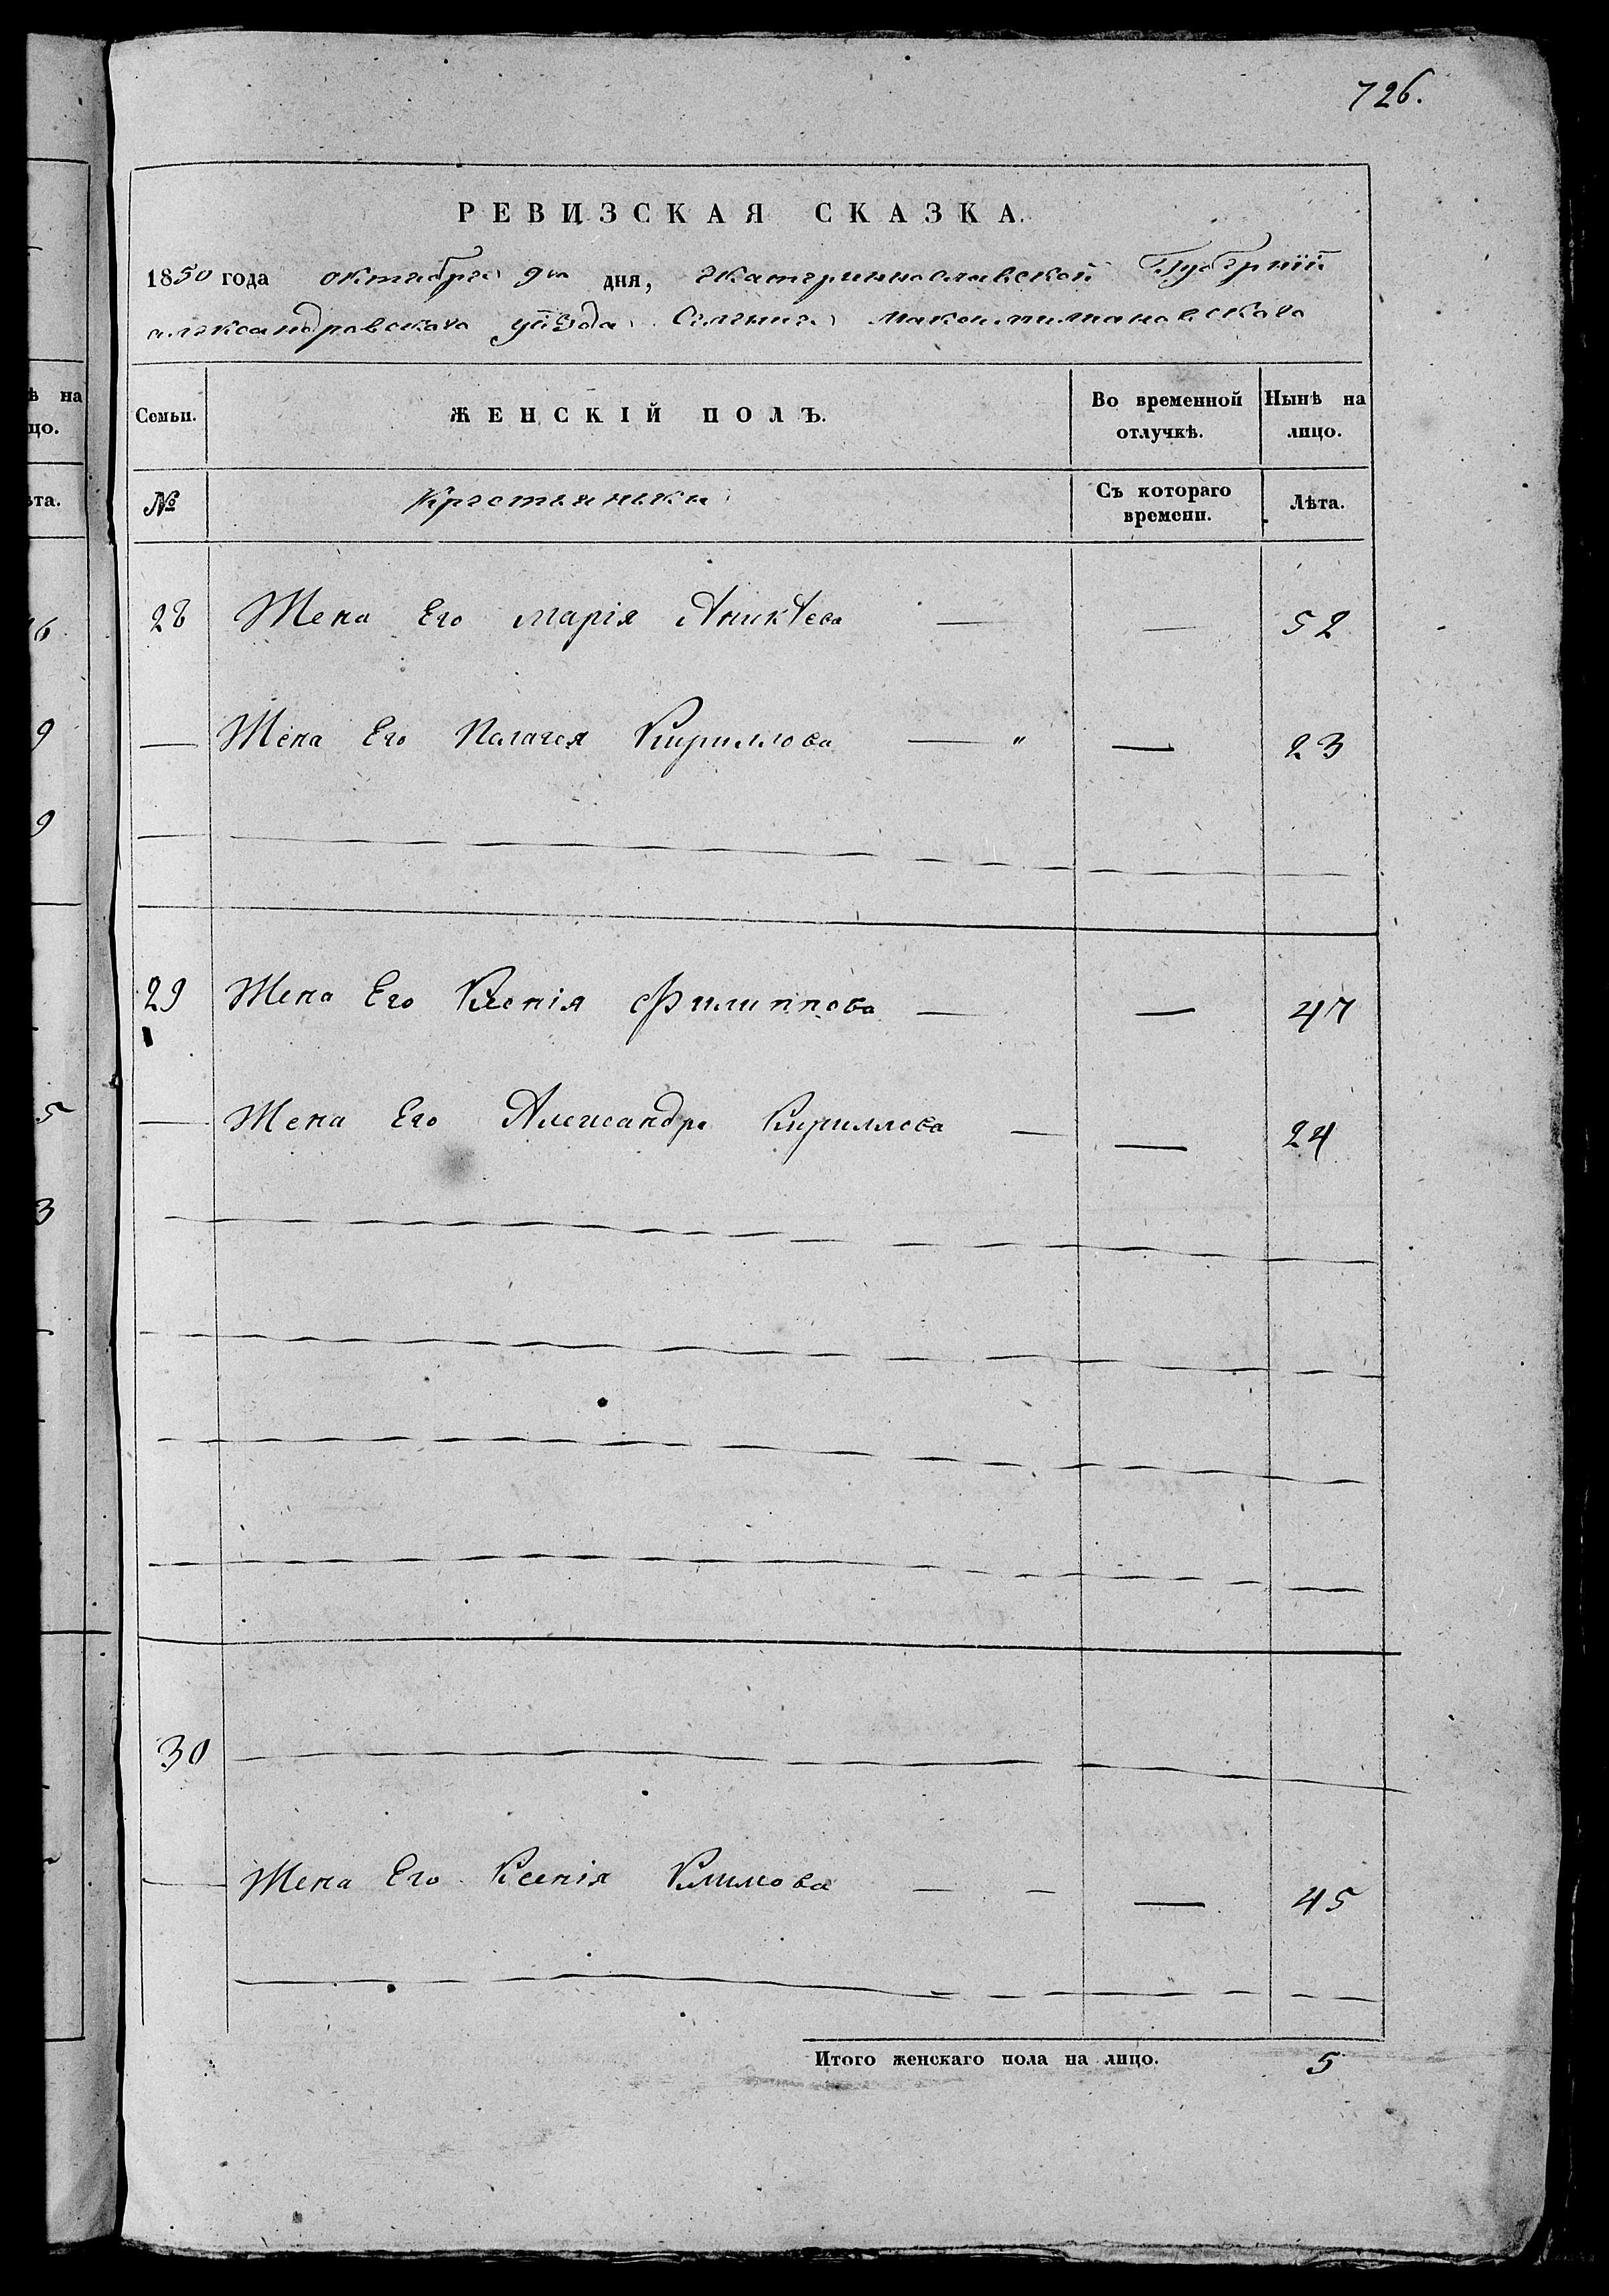 726.
РЕВИЗСКАЯ СКАЗКА.
1850 года октября 9го дня, Екатеринославской Губерніи
александровскаго уѣзда Селенія
Семьи. ЖЕНСКІЙ ПОЛЪ. Во временной отлучкѣ. Нынѣ на лицо.
№ Крестьянъки Съ котораго времени. Лѣта.
28 Жена Его Марія — — 52
— Жена Его Пелагея Кириллова — " — 23
29 Жена Его Ксенія Филиппова — — 47
— Жена Его Александра Кириллова — — 24
30
— Жена Его Ксенія Климова — — — 45
Итого женскаго пола на лицо. 5
ѣ на
цо.
ѣта.
6
9
9
5
3